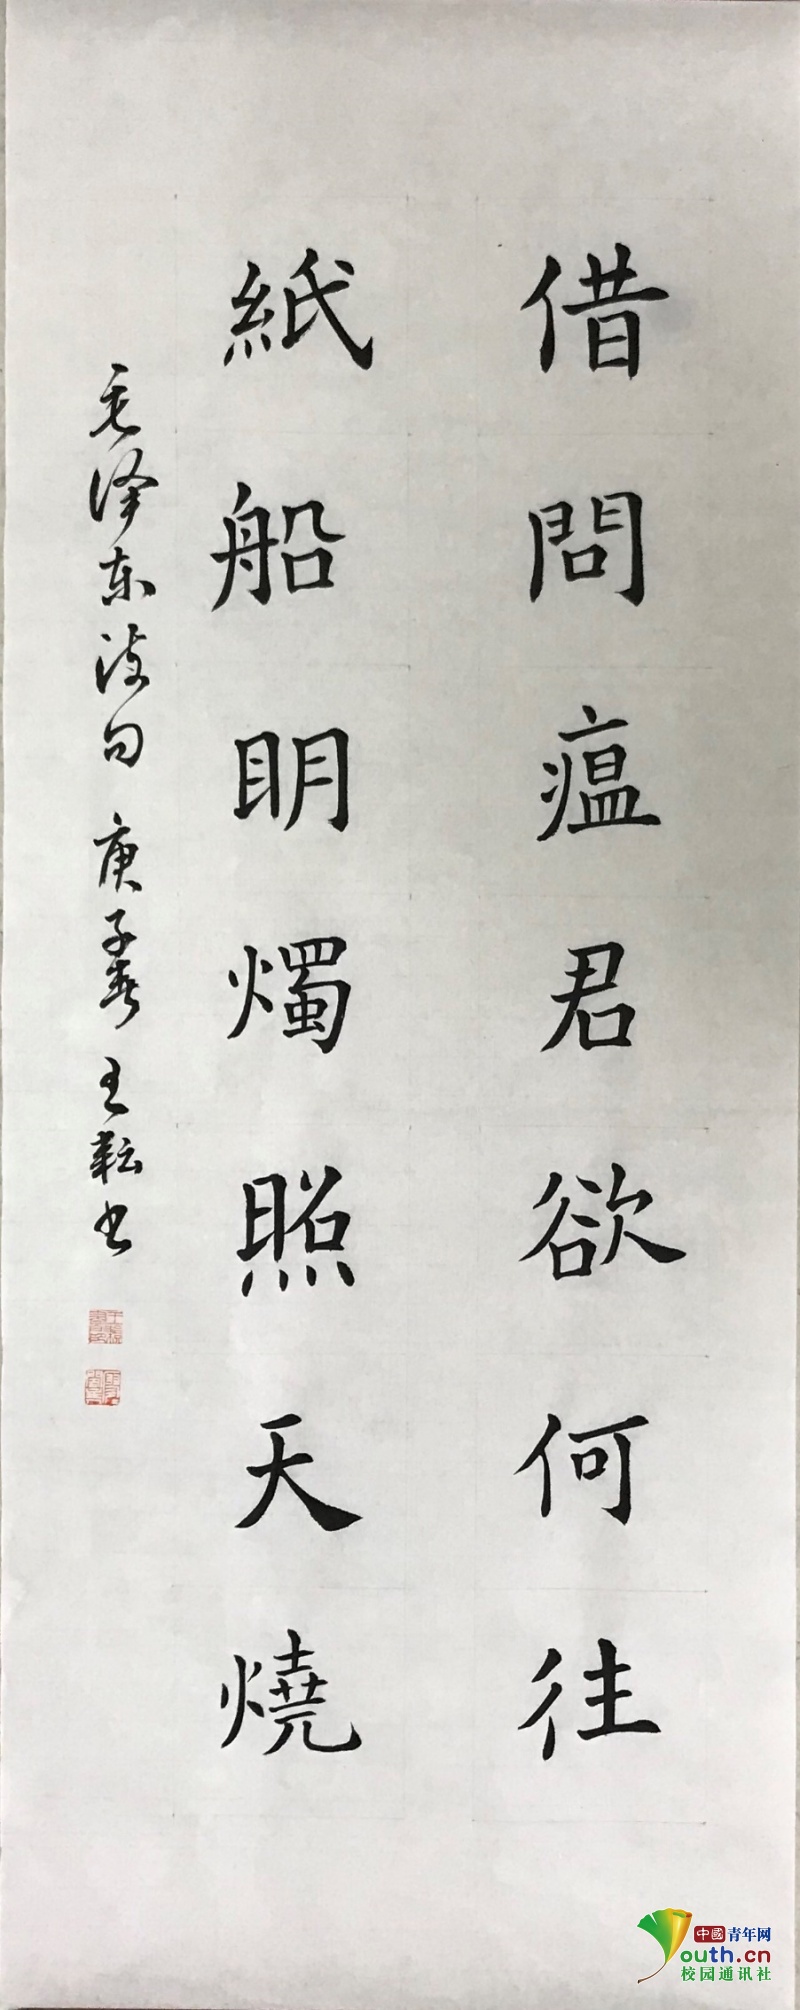 借問瘟君欲何往
紙船明燭照天燒
毛泽东诗句 庚子春 王耘书
中國青年网
youth.cn
校园通讯社